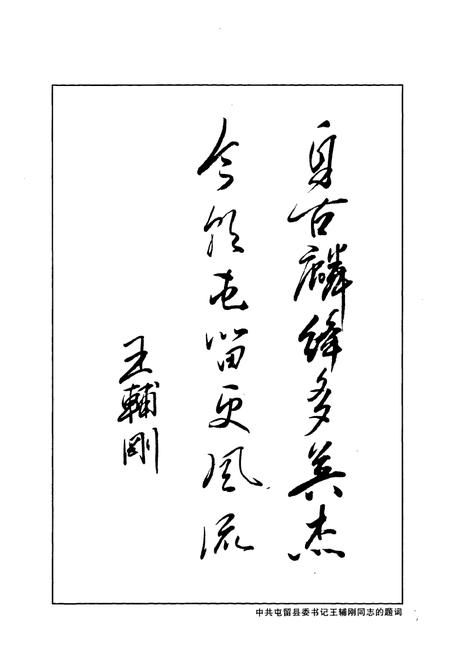 自古麟绛多英杰
今朝屯留更风流
王輔剛
中共屯留县委书记王辅刚同志的题词